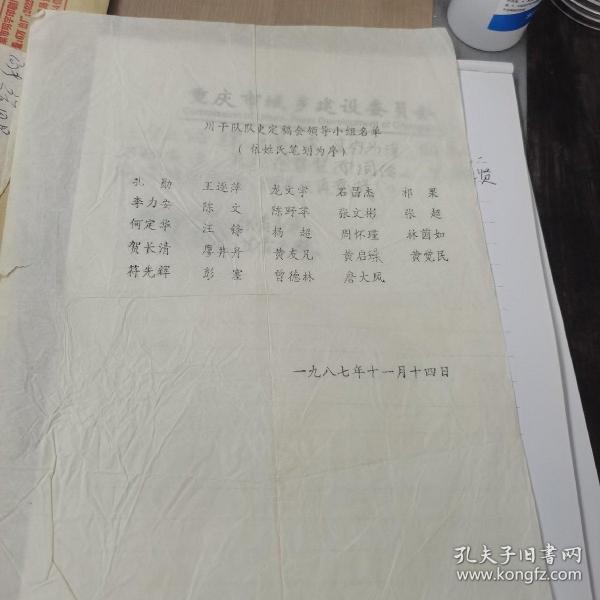 重庆市城乡建设委员会
川干队队史定稿会领导小组名单
（依姓氏笔划为序）
孔勋 王逐萍 龙文宇 石昌杰 祁果
李力安 陈文 陈野苹 张文彬 张超
何定华 汪锋 杨超 周怀瑾 林茵如
贺长清 廖井丹 黄友凡 黄启璪 黄觉民
符先辉 彭塞 曾德林 詹大风
一九八七年十一月十四日
孔夫子旧书网
www.kongfz.com